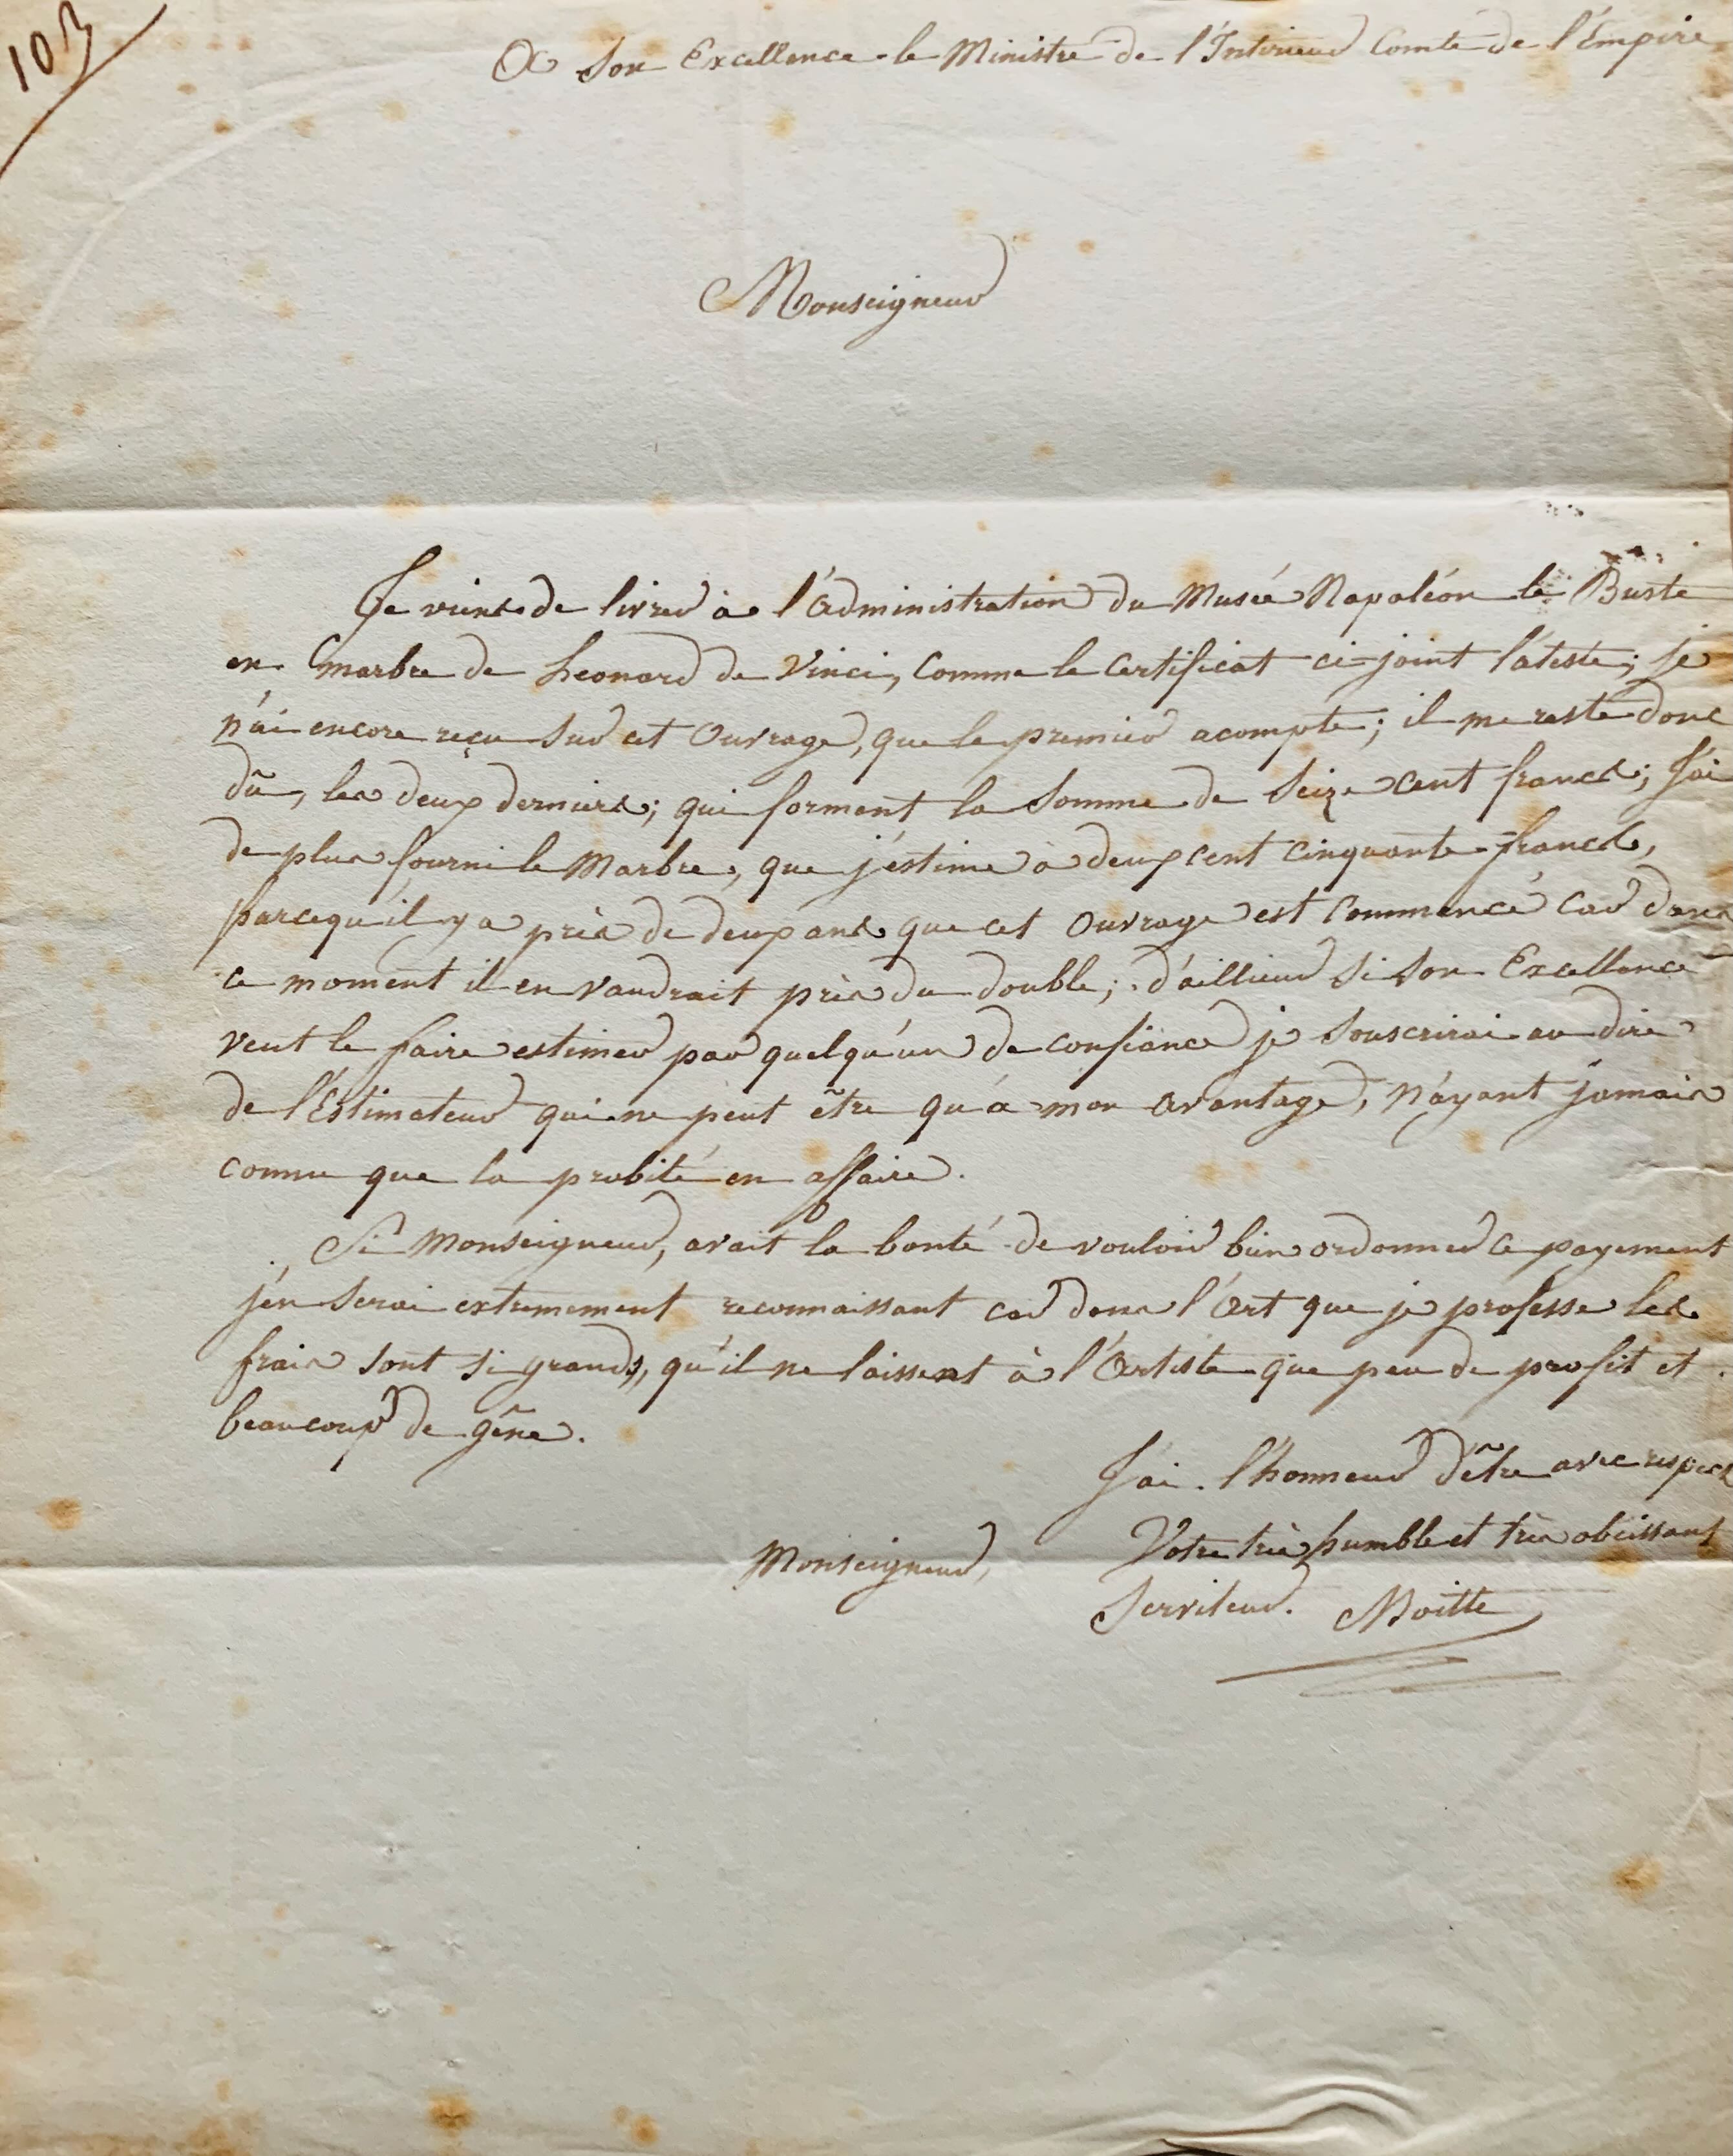 103
A Son Excellence le Ministre de l'Intérieur Comte de l'Empire
Monseigneur
Je viens de livrer à l'Administration du Musée Napoléon le Buste
en marbre de Leonard de Vinci, Comme le Certificat ci-joint l'ateste; je
n'ai encore reçu Sur cet Ouvrage, que le premier acompte; il me reste donc
dû, les deux derniers; qui forment la Somme de Seize cent francs; J'ai
de plus fourni le Marbre, que j'estime à deux cent cinquante francs,
parcequ'il y a près de deux ans que cet Ouvrage est Commencé Car dans
ce moment il en vaudrait près du double; d'ailleurs si Son Excellence
veut le faire estimer par quelqu'un de confiance je Souscrirai au dire
de l'Estimateur qui ne peut être qu'à mon Avantage, n'ayant jamais
connu que la probité en affaire.
Si Monseigneur, avait la bonté de vouloir bien ordonner ce payement
j'en Serai extremement reconnaissant car dans l'Art que je professe les
frais sont si grands, qu'il ne laissent à l'Artiste que peu de profit et
beaucoup de gêne.
J'ai l'honneur d'être avec respect
Monseigneur, Votre très humble et très obéissant
Serviteur. Moitte